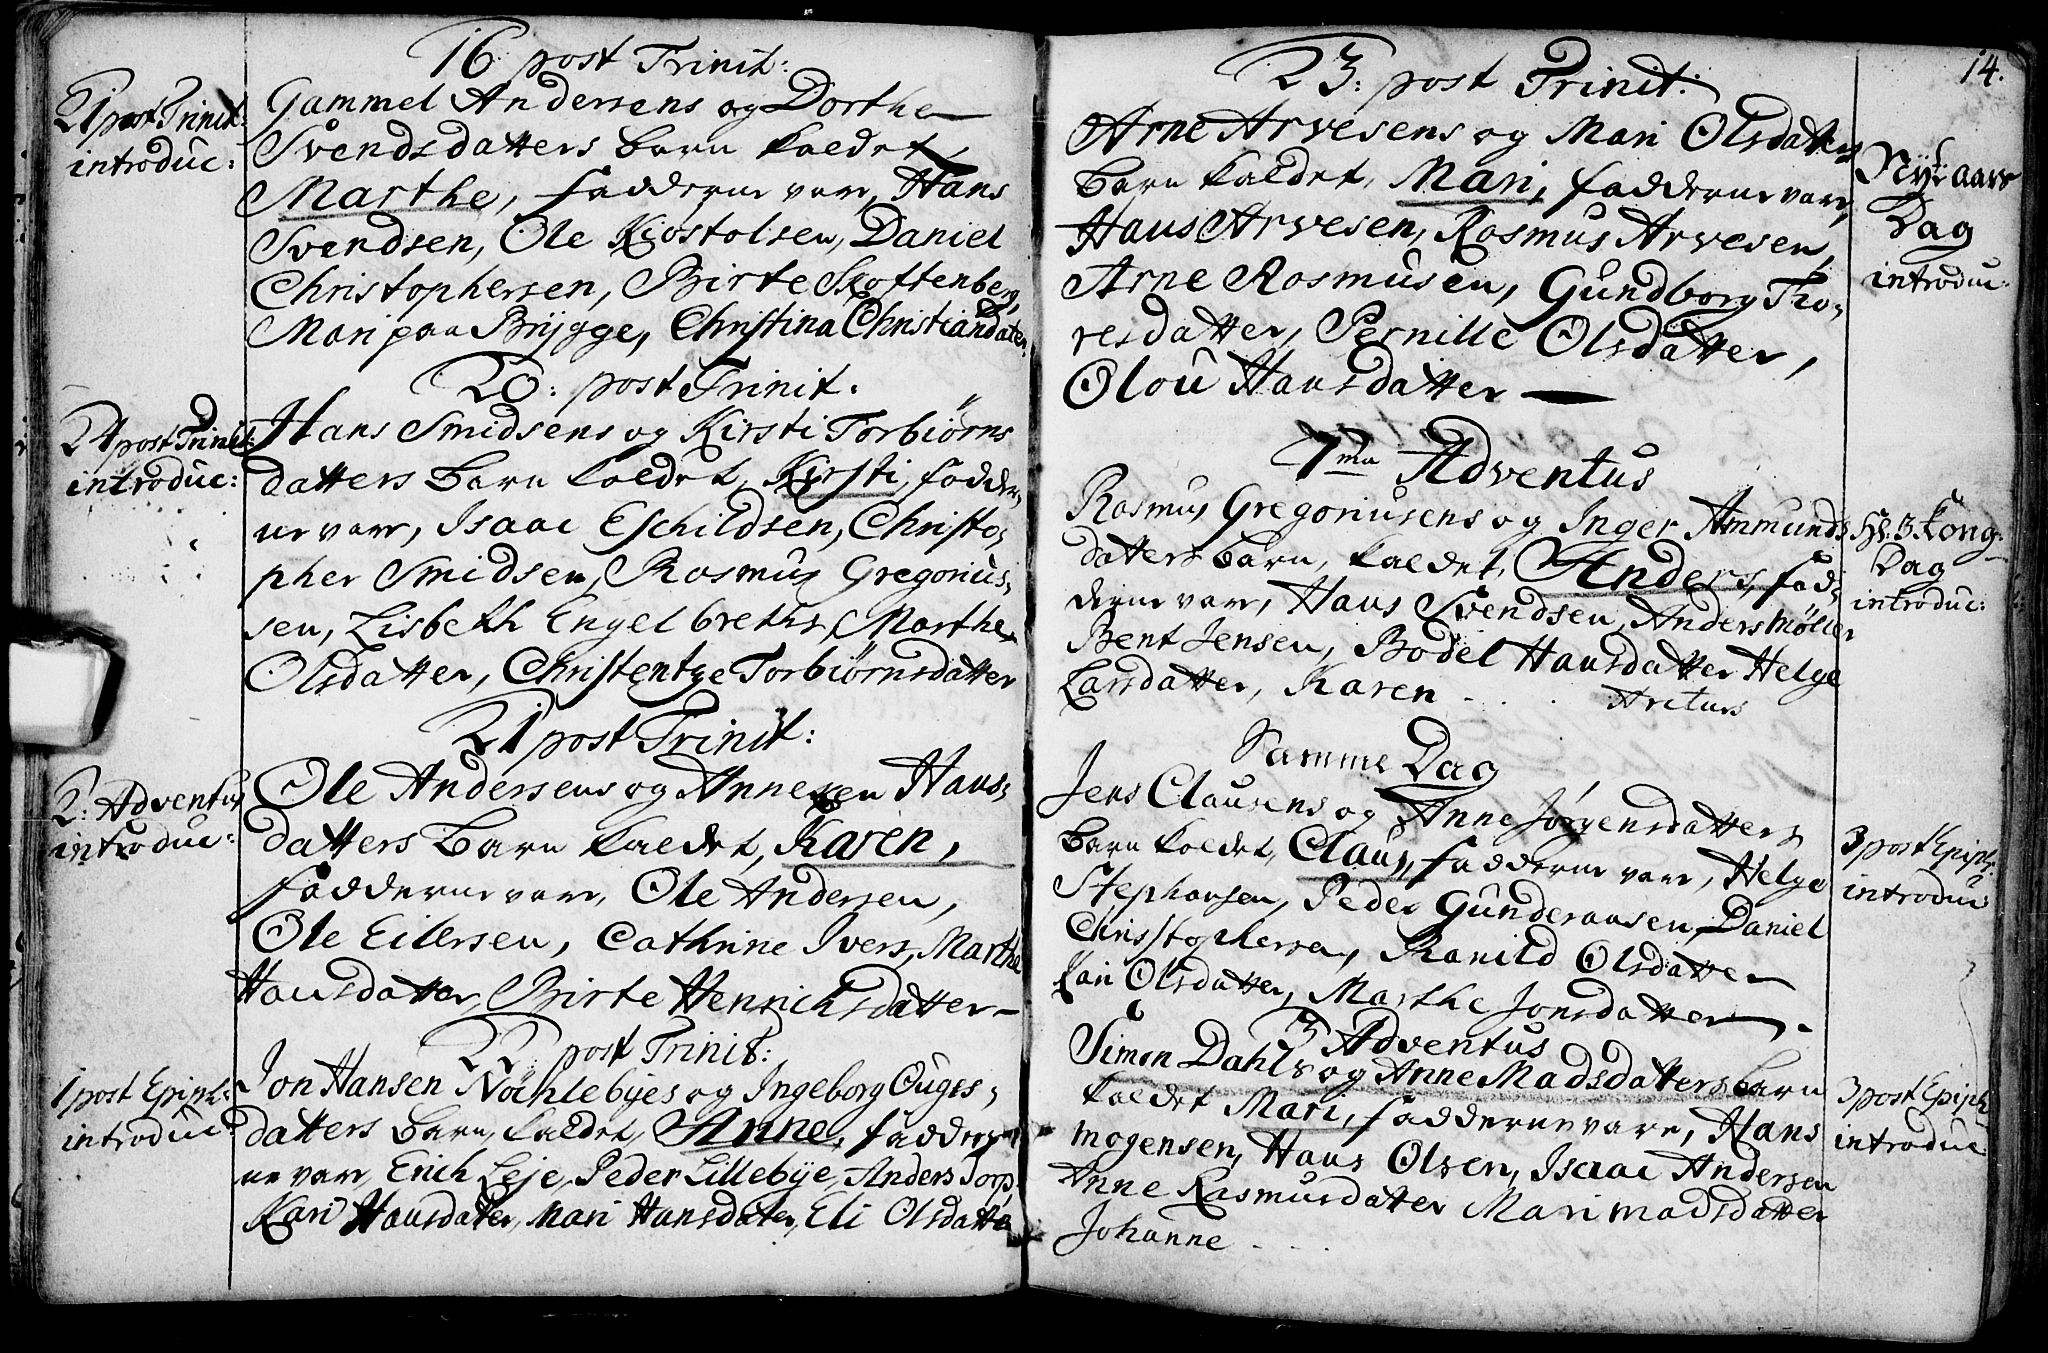 16 post Trinit:
21 post Trinit:
introduc:
Gammel Andersens og Dorthe
Svendsdatters Barn kaldet,
Marthe, Fadderne var, Hans
Svendsen, Ole Kiostolsen, Daniel
Christophersen, Birte Skoftenberg,
Mari paa Brÿgge, Christina Christiandater.
20: post Trinit.
24 post Trinit:
introduc:
Hans Smidsens og Kirsti Torbiörns
datters Barn kaldet, Kirsti, Fadder,
ne varr, Isaac Eschildsen, Christo,
pher Smidsen, Rosmus Gregorius,
sen, Lisbeth Engelbreths, Marthe
Olsdatter, Christentze Torbiörnsdatter
21 post Trinit:
2: Adventus
introduc:
Ole Andersens og Anne Hans,
datters Barn kaldet, Karen,
Fadderne varr, Ole Andersen,
Ole Eilersen, Cathrine Ivers, Marthe
Hansdatter, Birte Henrichsdatter
22 post Trinit:
1 post Epiph:
introduc:
Jon Hansen Nochlebÿes og Ingeborg Ouges,
datters Barn, kaldet, Anne, Fadder,
ne varr, Erich Leje, Peder Lillebÿe, Anders Torp,
Kari Hansdatter, Mari Hansdater, Eli Olsdatter
14.
23: post Trinit:
Arne Arvesens og Mari Olsdatters
Barn kaldet, Mari, Fadderne varr,
Hans Arvesen, Rosmus Arvesen,
Arne Rosmusen, Gundborg Tho,
resdatter, Pernille Olsdatter,
Olou Hansdatter
Nÿt aars
Dag
introduc:
1ma Adventus
Rasmus Gregoriusens og Inger Ammunds
datters Barn, kaldet, Anders, Fad,
derne varr, Hans Svendsen, Anders Möller
Bent Jensen, Bodel Hansdatter Helge
Larsdatter, Karen . . . Aretürs
H: 3 Kong:
Dag
introduc:
Samme Dag
Jens Clausens og Anne Jörgensdatters
Barn kaldet, Claus, Fadderne varr, Helge
Stephansen, Peder Gundersen, Daniel
Christophersen, Ranild Olsdatter
Kari Olsdatter, Marthe Jonsdatter
3 post Epiph:
introduc
3 Adventus
Simon Dahls og Anne Madsdatters Barn
kaldet Mari, Fadderne vare, Hans
Mogensen, Hans Olsen, Isaac Andersen
Anne Rasmusdatter Mari Madsdatter
Johanne . . .
3 post Epiph
introduc